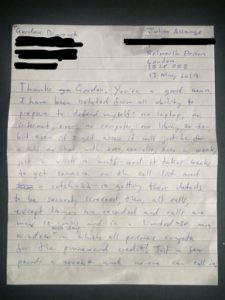 Gordon Dimmack
Julian Assange
Belmarsh Prison
London
SE28 0EB
13 May 2019
Thanks Gordon. You're a good man.
I have been isolated from all ability to
prepare to defend myself: no laptop, no
internet, ever, no computer, no library, so far
but even if I get access it will just be for
half an hour with everyone else, once a week.
just a month and it takes weeks
to get someone on the call list and
a catch-22 in getting their details
to be security screened. Then all calls,
except lawyer are recorded and calls are
max 10 mins and in a limited 30 mins
window in which all prisoners compete
for the phone and credit? Just a few
pounds a week and no one can call in